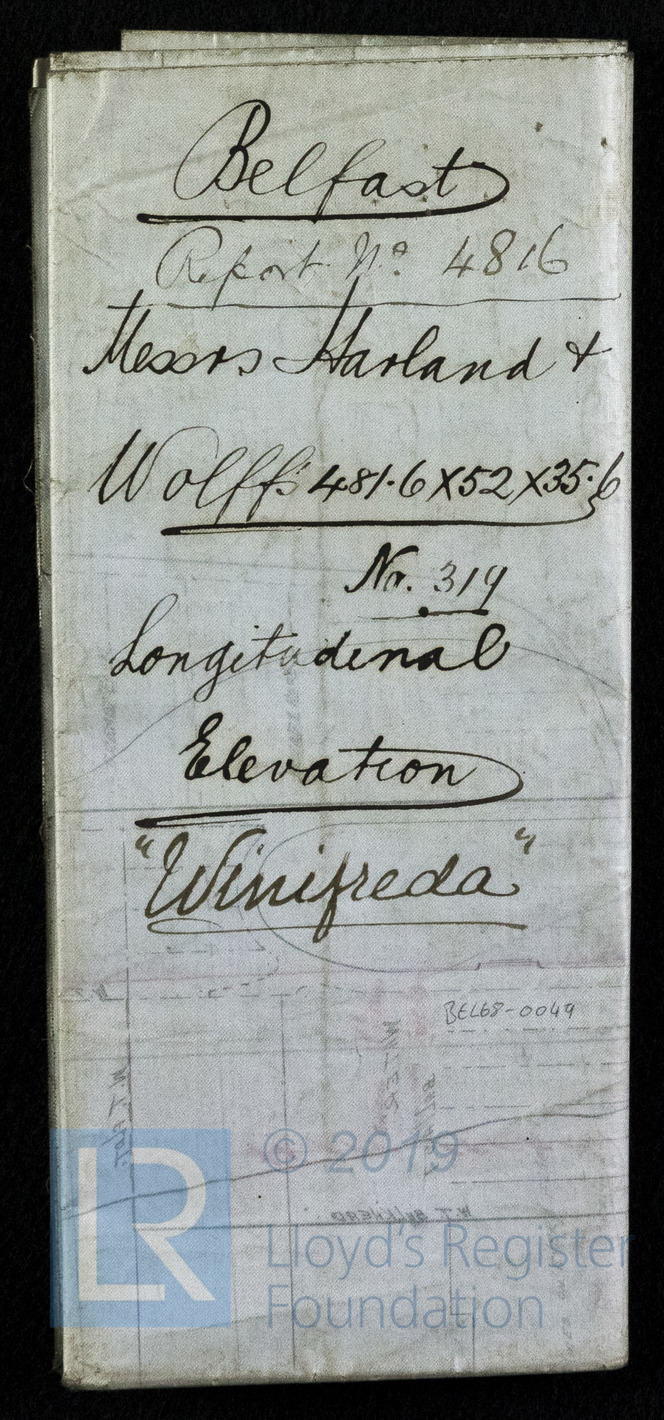 Belfast
Report No. 4816
Messrs Harland &
Wolff's 481·6 X 52 X 35·6
No. 319
Longitudinal
Elevation
"Winifreda"
BEL68-0049
WATER
W.T. BULKHEAD
LR
© 2019
Lloyd's Register
Foundation